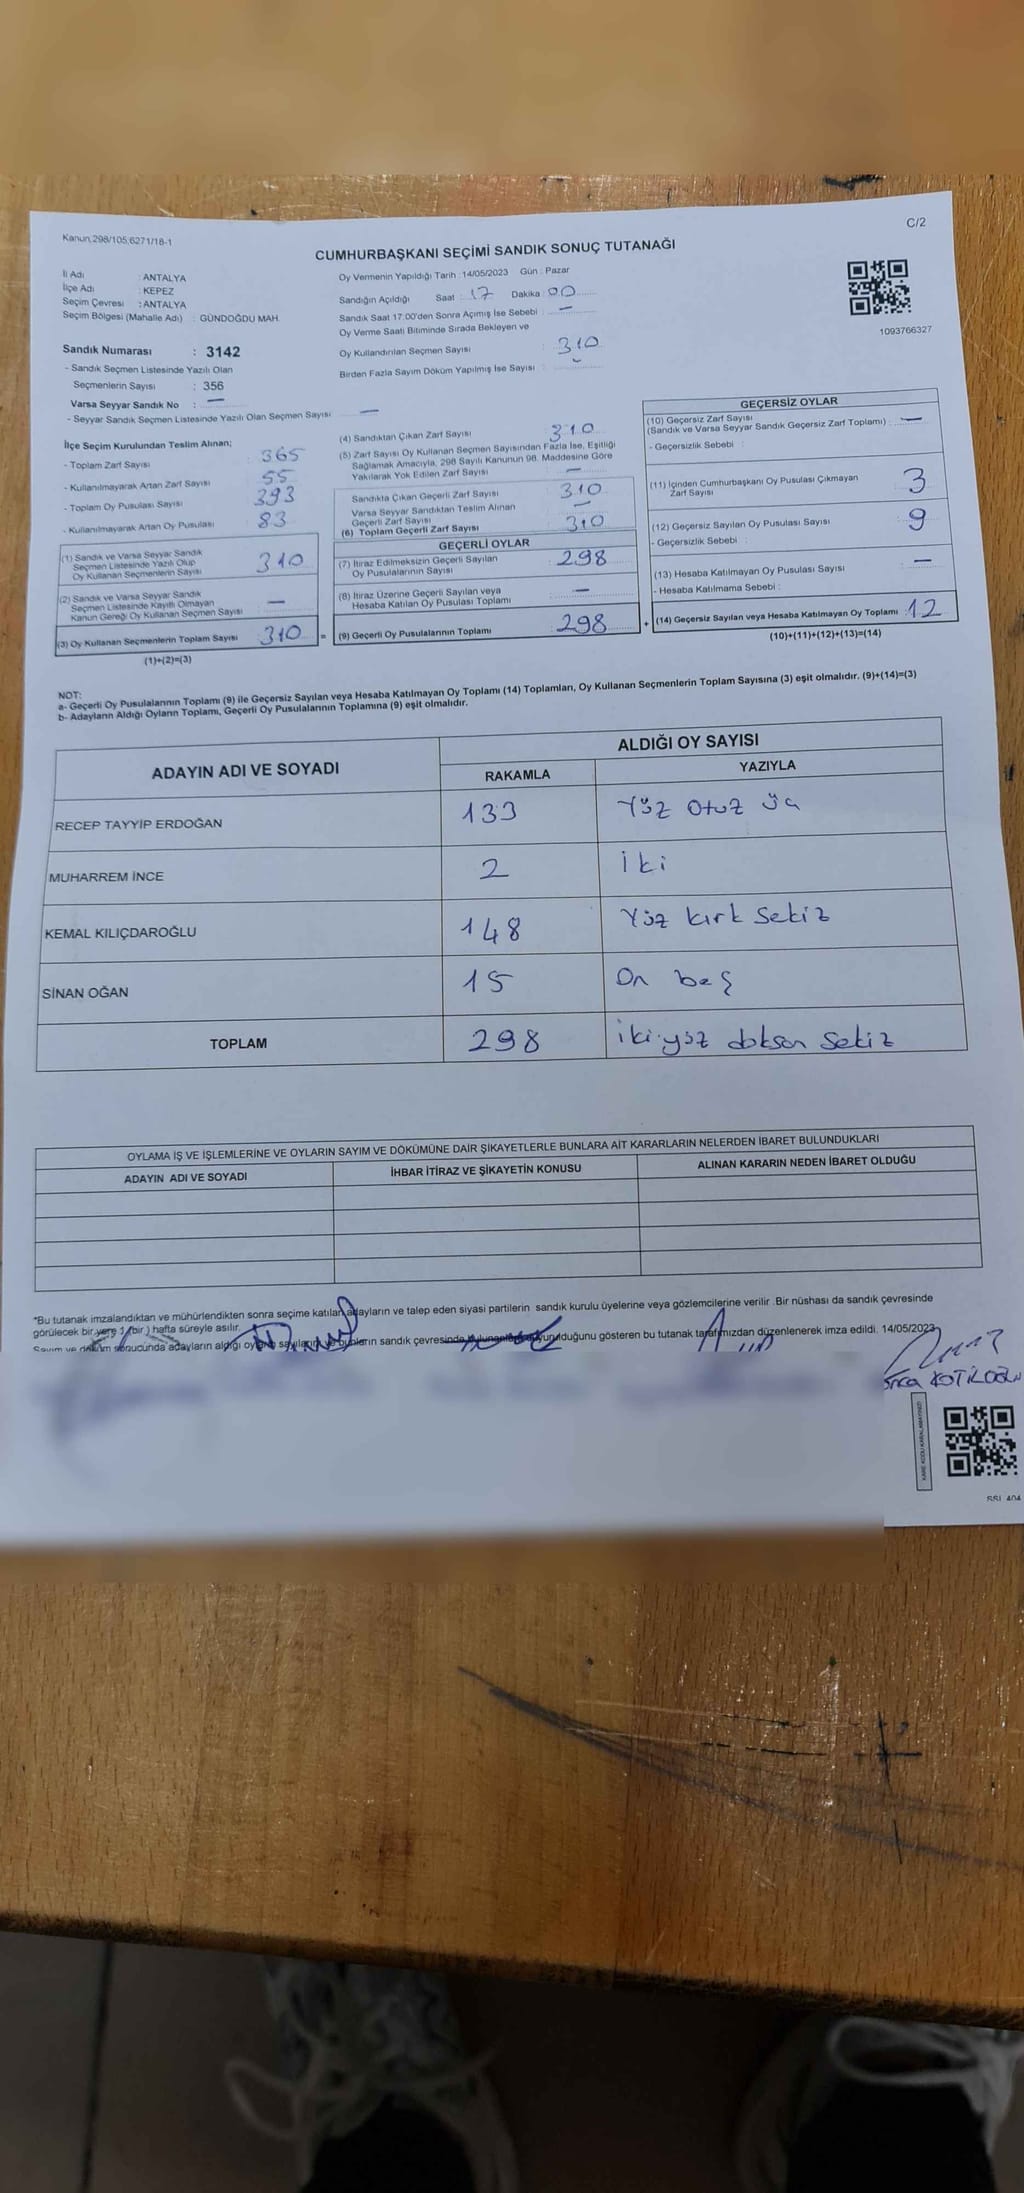 Kanun;298/105;6271/18-1
C/2
CUMHURBAŞKANI SEÇİMİ SANDIK SONUÇ TUTANAĞI
İl Adı : ANTALYA
İlçe Adı : KEPEZ
Seçim Çevresi : ANTALYA
Seçim Bölgesi (Mahalle Adı) : GÜNDOĞDU MAH.
Sandık Numarası : 3142
- Sandık Seçmen Listesinde Yazılı Olan
Seçmenlerin Sayısı : 356
Varsa Seyyar Sandık No : —
- Seyyar Sandık Seçmen Listesinde Yazılı Olan Seçmen Sayısı —
Oy Vermenin Yapıldığı Tarih : 14/05/2023 Gün : Pazar
Sandığın Açıldığı Saat : 17 Dakika : 00
Sandık Saat 17:00'den Sonra Açımış İse Sebebi : —
Oy Verme Saati Bitiminde Sırada Bekleyen ve
Oy Kullandırılan Seçmen Sayısı : 310
Birden Fazla Sayım Döküm Yapılmış İse Sayısı :
1093766327
İlçe Seçim Kurulundan Teslim Alınan;
- Toplam Zarf Sayısı : 365
- Kullanılmayarak Artan Zarf Sayısı : 55
- Toplam Oy Pusulası Sayısı : 393
- Kullanılmayarak Artan Oy Pusulası : 83
(1) Sandık ve Varsa Seyyar Sandık
Seçmen Listesinde Yazılı Olup
Oy Kullanan Seçmenlerin Sayısı 310
(2) Sandık ve Varsa Seyyar Sandık
Seçmen Listesinde Kayıtlı Olmayan
Kanun Gereği Oy Kullanan Seçmen Sayısı —
(3) Oy Kullanan Seçmenlerin Toplam Sayısı 310 =
(1)+(2)=(3)
(4) Sandıktan Çıkan Zarf Sayısı : 310
(5) Zarf Sayısı Oy Kullanan Seçmen Sayısından Fazla İse, Eşitliği
Sağlamak Amacıyla, 298 Sayılı Kanunun 98. Maddesine Göre
Yakılarak Yok Edilen Zarf Sayısı —
Sandıkta Çıkan Geçerli Zarf Sayısı 310
Varsa Seyyar Sandıktan Teslim Alınan
Geçerli Zarf Sayısı —
(6) Toplam Geçerli Zarf Sayısı 310
GEÇERLİ OYLAR
(7) İtiraz Edilmeksizin Geçerli Sayılan
Oy Pusulalarının Sayısı 298
(8) İtiraz Üzerine Geçerli Sayılan veya
Hesaba Katılan Oy Pusulası Toplamı —
(9) Geçerli Oy Pusulalarının Toplamı 298 +
GEÇERSİZ OYLAR
(10) Geçersiz Zarf Sayısı
(Sandık ve Varsa Seyyar Sandık Geçersiz Zarf Toplamı) : —
- Geçersizlik Sebebi :
(11) İçinden Cumhurbaşkanı Oy Pusulası Çıkmayan
Zarf Sayısı 3
(12) Geçersiz Sayılan Oy Pusulası Sayısı 9
- Geçersizlik Sebebi :
(13) Hesaba Katılmayan Oy Pusulası Sayısı —
- Hesaba Katılmama Sebebi :
(14) Geçersiz Sayılan veya Hesaba Katılmayan Oy Toplamı 12
(10)+(11)+(12)+(13)=(14)
NOT:
a- Geçerli Oy Pusulalarının Toplamı (9) ile Geçersiz Sayılan veya Hesaba Katılmayan Oy Toplamı (14) Toplamları, Oy Kullanan Seçmenlerin Toplam Sayısına (3) eşit olmalıdır. (9)+(14)=(3)
b- Adayların Aldığı Oyların Toplamı, Geçerli Oy Pusulalarının Toplamına (9) eşit olmalıdır.
ADAYIN ADI VE SOYADI
ALDIĞI OY SAYISI
RAKAMLA YAZIYLA
RECEP TAYYİP ERDOĞAN 133 Yüz otuz üç
MUHARREM İNCE 2 İki
KEMAL KILIÇDAROĞLU 148 Yüz kırk sekiz
SİNAN OĞAN 15 On beş
TOPLAM 298 iki yüz doksan sekiz
OYLAMA İŞ VE İŞLEMLERİNE VE OYLARIN SAYIM VE DÖKÜMÜNE DAİR ŞİKAYETLERLE BUNLARA AİT KARARLARIN NELERDEN İBARET BULUNDUKLARI
ADAYIN ADI VE SOYADI İHBAR İTİRAZ VE ŞİKAYETİN KONUSU ALINAN KARARIN NEDEN İBARET OLDUĞU
*Bu tutanak imzalandıktan ve mühürlendikten sonra seçime katılan adayların ve talep eden siyasi partilerin sandık kurulu üyelerine veya gözlemcilerine verilir . Bir nüshası da sandık çevresinde
görülecek bir yere 1 (bir) hafta süreyle asılır.
Sayım ve döküm sonucunda adayların aldığı oyların sayılarını ve bunların sandık çevresinde bulunduğunu gösteren bu tutanak tarafımızdan düzenlenerek imza edildi. 14/05/2023
KARE KODU KARALAMAYINIZ!